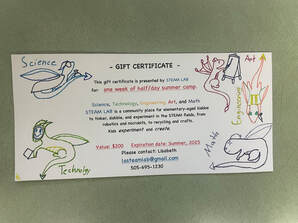 - GIFT CERTIFICATE -
This gift certificate is presented by STEAM LAB
for: one week of halfday summer camp.
Science, Technology, Engineering, Art, and Math
STEAM LAB is a community place for elementary-aged kiddos
to tinker, dabble, and experiment in the STEAM fields, from
robotics and microbits, to recycling and crafts.
Kids experiment and create.
Value: $200 Expiration date: Summer, 2023
Please contact: Lisabeth
lasteamlab@gmail.com
505-695-1230
Science
Technology
Art
Engineering
Math